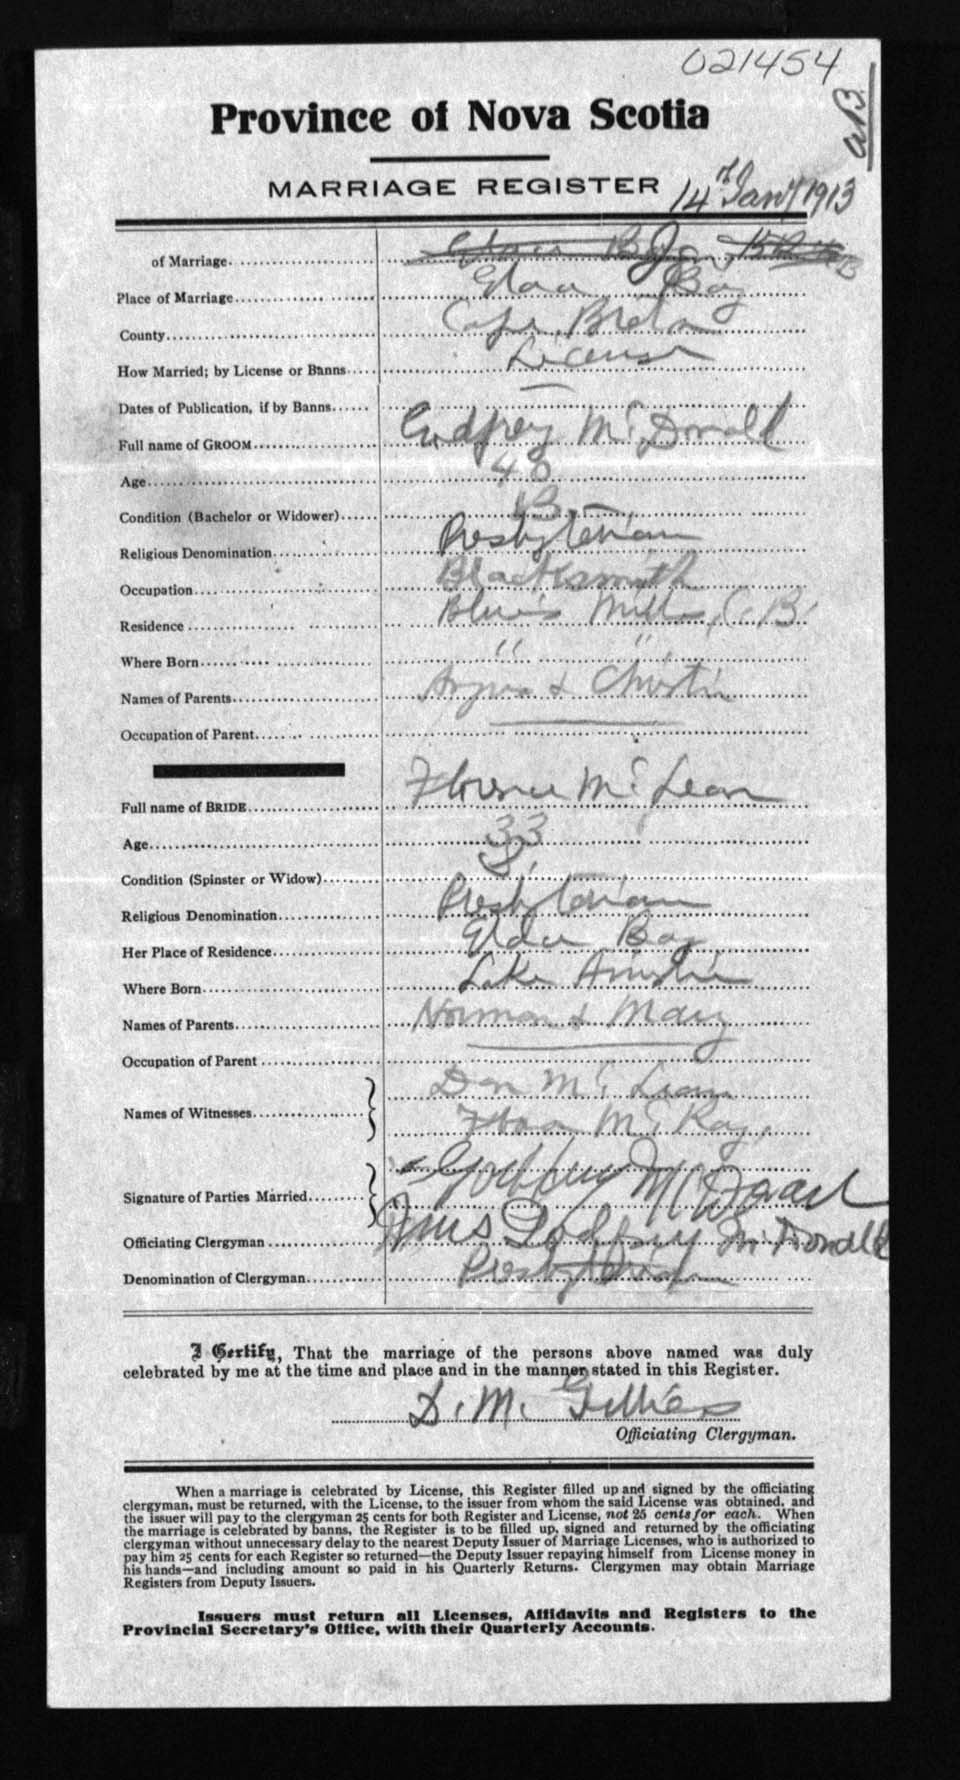 021454
aB.
Province of Nova Scotia
MARRIAGE REGISTER
14th Jan'y 1913
of Marriage
Place of Marriage Glace Bay
County Cape Breton
How Married; by License or Banns License
Dates of Publication, if by Banns —
Full name of GROOM Godfrey McDonald
Age 40
Condition (Bachelor or Widower) B.
Religious Denomination Presbyterian
Occupation Blacksmith
Residence Blue's Mills, C.B.
Where Born " "
Names of Parents Angus & Christie
Occupation of Parent
Full name of BRIDE Florence McLean
Age 33
Condition (Spinster or Widow) S.
Religious Denomination Presbyterian
Her Place of Residence Glace Bay
Where Born Lake Ainslie
Names of Parents Norman & Mary
Occupation of Parent
Names of Witnesses Dan McLean
McKay
Signature of Parties Married Godfrey McDonald
Mrs Godfrey McDonald
Officiating Clergyman
Denomination of Clergyman Presbyterian
I Certify, That the marriage of the persons above named was duly
celebrated by me at the time and place and in the manner stated in this Register.
D. M. Gillies
Officiating Clergyman.
When a marriage is celebrated by License, this Register filled up and signed by the officiating
clergyman, must be returned, with the License, to the issuer from whom the said License was obtained, and
the issuer will pay to the clergyman 25 cents for both Register and License, not 25 cents for each. When
the marriage is celebrated by banns, the Register is to be filled up, signed and returned by the officiating
clergyman without unnecessary delay to the nearest Deputy Issuer of Marriage Licenses, who is authorized to
pay him 25 cents for each Register so returned—the Deputy Issuer repaying himself from License money in
his hands—and including amount so paid in his Quarterly Returns. Clergymen may obtain Marriage
Registers from Deputy Issuers.
Issuers must return all Licenses, Affidavits and Registers to the
Provincial Secretary's Office, with their Quarterly Accounts.